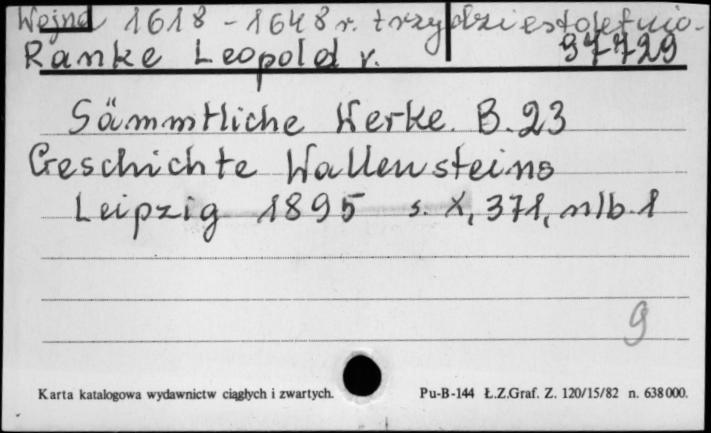 Wojna 1618-1648 r. trzydziestoletnia
Ranke Leopold v. 97729
Sämmtliche Werke. B. 23
Geschichte Wallensteins
Leipzig 1895 s. X, 371, nlb. 1
9
Karta katalogowa wydawnictw ciągłych i zwartych. Pu-B-144 Ł.Z.Graf. Z. 120/15/82 n. 638000.